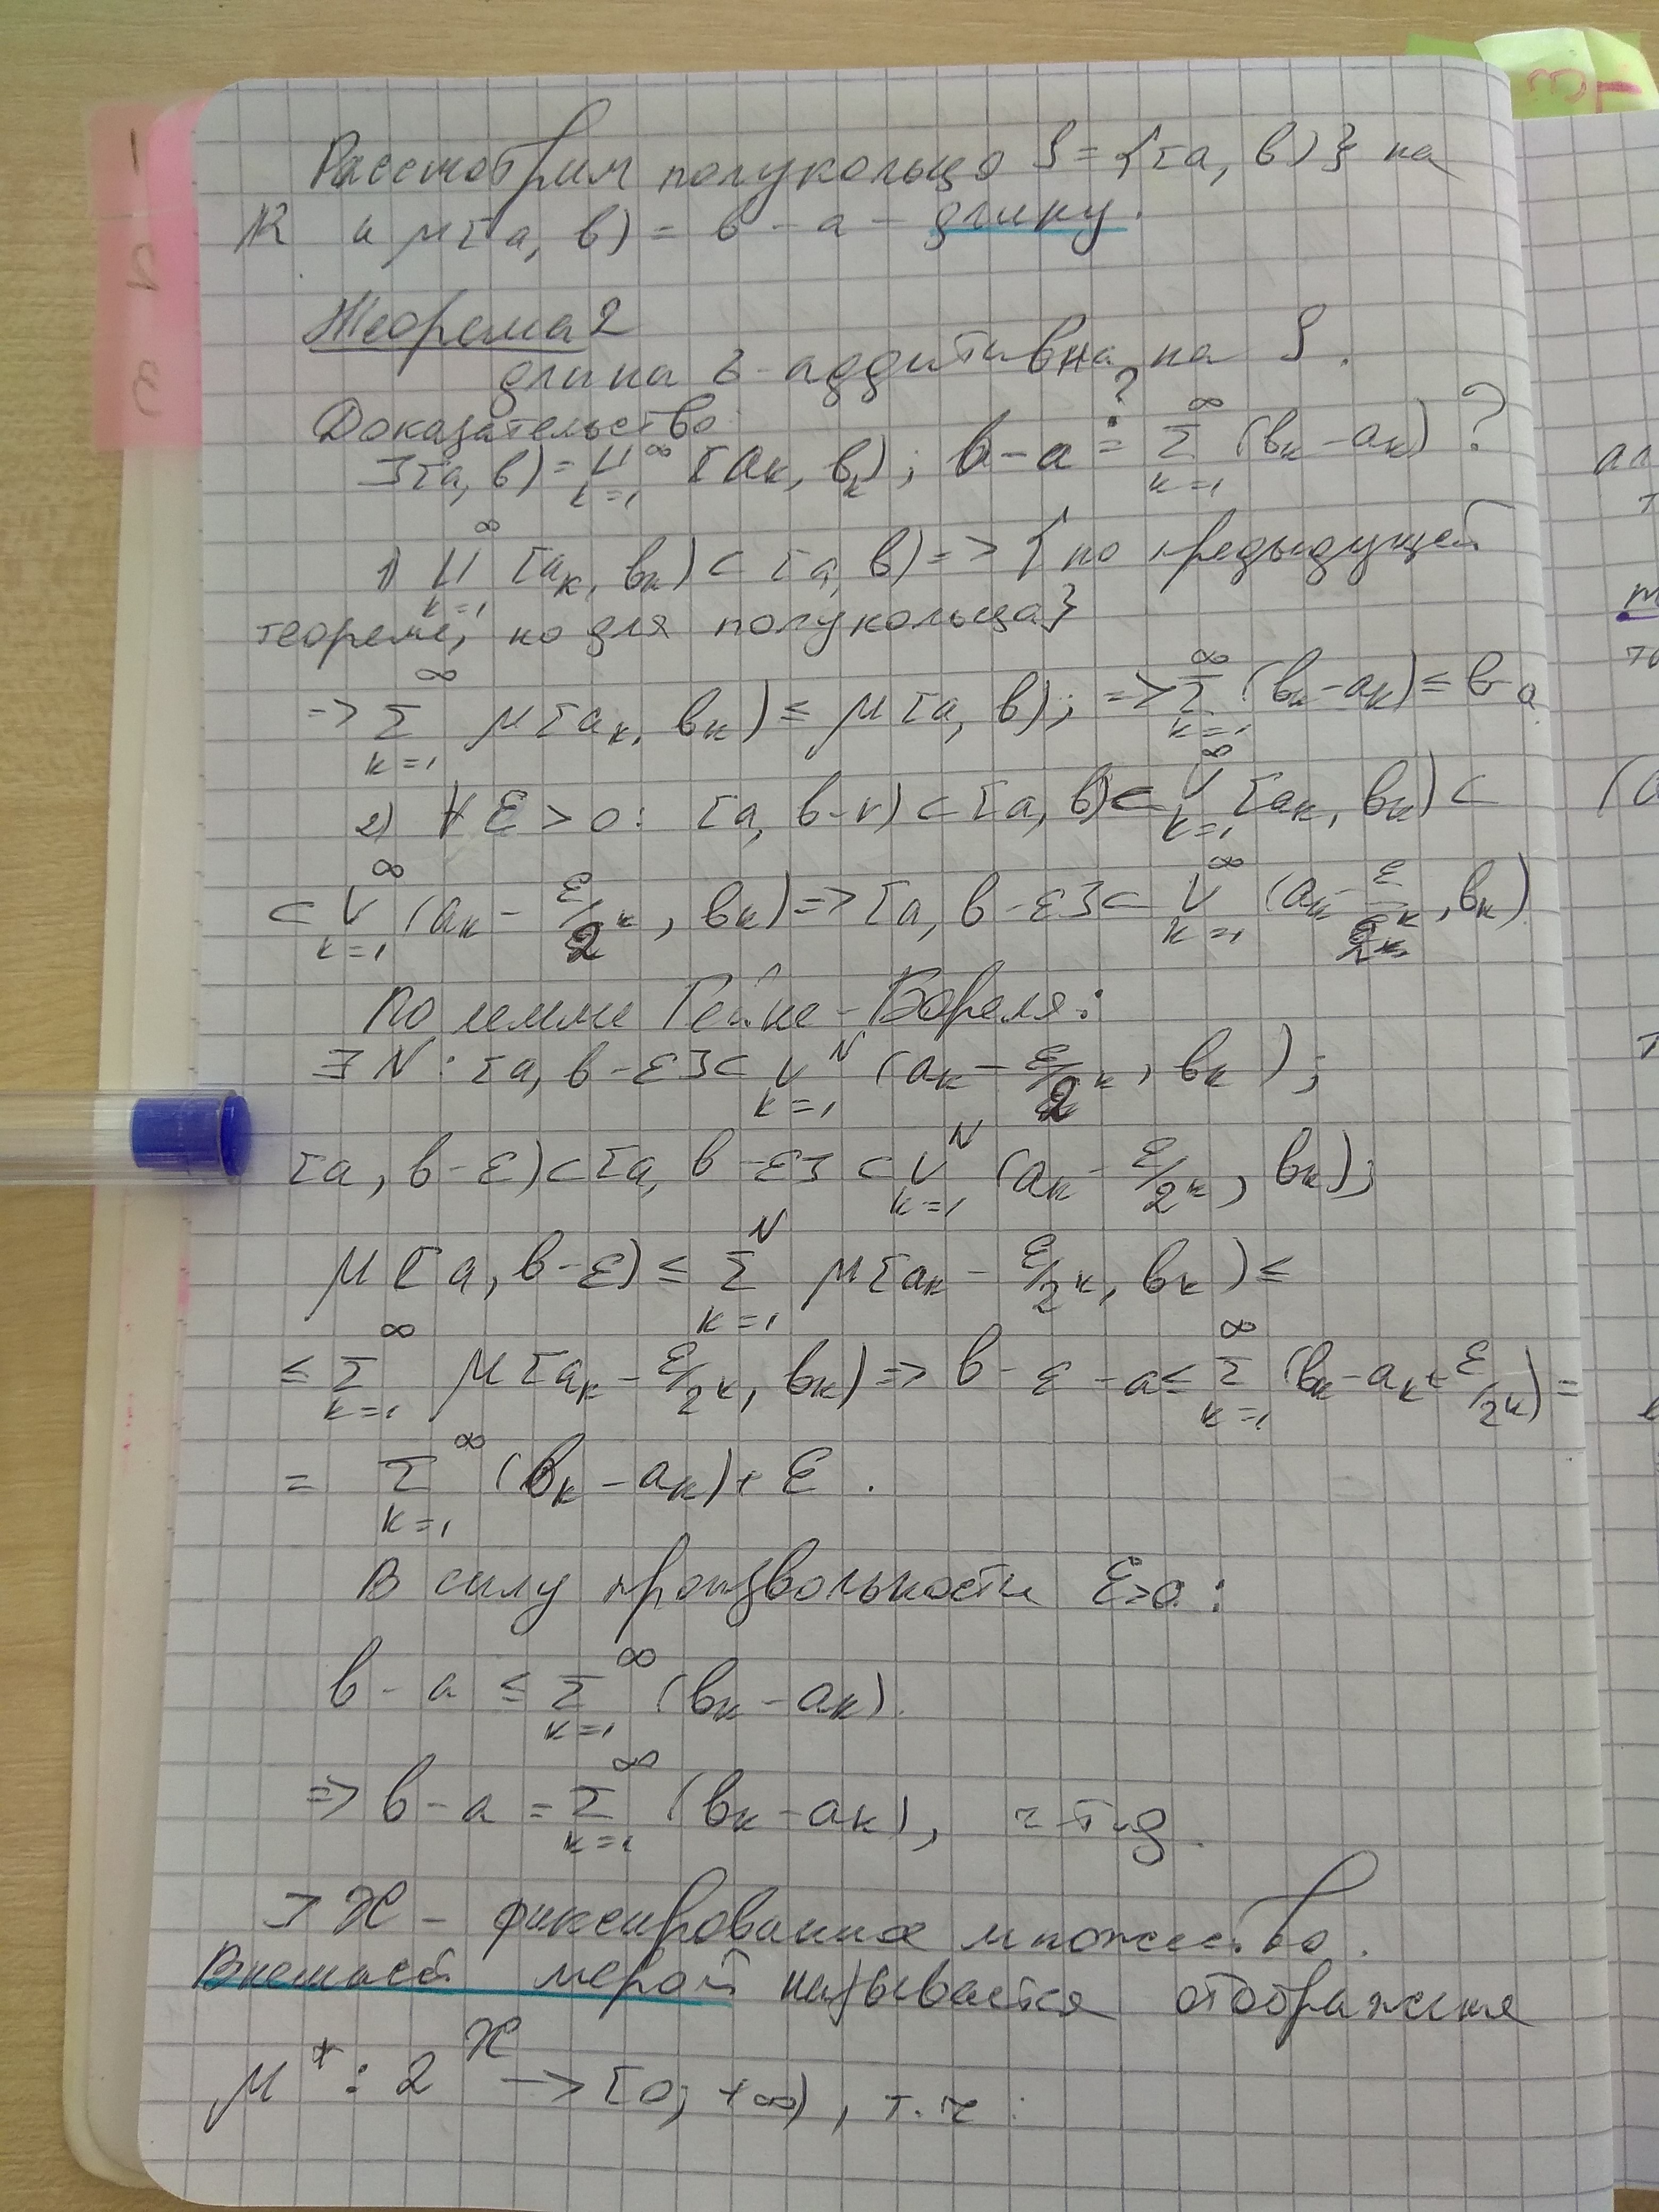 Рассмотрим полукольцо S = {[a, b)} на
ℝ и μ[a, b) = b - a - длину.
Теорема 2
длина σ-аддитивна на S.
Доказательство
∃[a, b) = ⊔_{k=1}^∞ [a_k, b_k); b - a ≟ Σ_{k=1}^∞ (b_k - a_k) ?
1) ⊔_{k=1}^∞ [a_k, b_k) ⊂ [a, b) => {по предыдущей
теореме, но для полукольца}
=> Σ_{k=1}^∞ μ[a_k, b_k) ≤ μ[a, b); => Σ_{k=1}^∞ (b_k - a_k) ≤ b - a
2) ∀ε > 0: [a, b-ε) ⊂ [a, b) ⊂ ∪_{k=1}^∞ [a_k, b_k) ⊂
⊂ ∪_{k=1}^∞ (a_k - ε/2^k, b_k) => [a, b-ε] ⊂ ∪_{k=1}^∞ (a_k - ε/2^k, b_k)
По лемме Гейне-Бореля:
∃N: [a, b-ε] ⊂ ∪_{k=1}^N (a_k - ε/2^k, b_k);
[a, b-ε) ⊂ [a, b-ε] ⊂ ∪_{k=1}^N (a_k - ε/2^k, b_k);
μ[a, b-ε) ≤ Σ_{k=1}^N μ[a_k - ε/2^k, b_k) ≤
≤ Σ_{k=1}^∞ μ[a_k - ε/2^k, b_k) => b - ε - a ≤ Σ_{k=1}^∞ (b_k - a_k + ε/2^k) =
= Σ_{k=1}^∞ (b_k - a_k) + ε.
В силу произвольности ε>0:
b - a ≤ Σ_{k=1}^∞ (b_k - a_k).
=> b - a = Σ_{k=1}^∞ (b_k - a_k), ч-т-д.
∃ X - фиксированное множество.
Внешней мерой называется отображение
μ* : 2^X -> [0; +∞), т.ч: